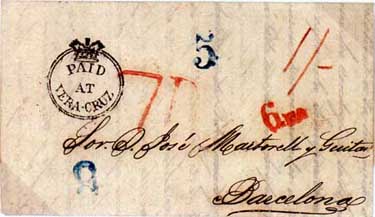 PAID
AT
VERA-CRUZ
5
1/-
7
6
Sor. D. José Martorell y Guitar
8
Barcelona